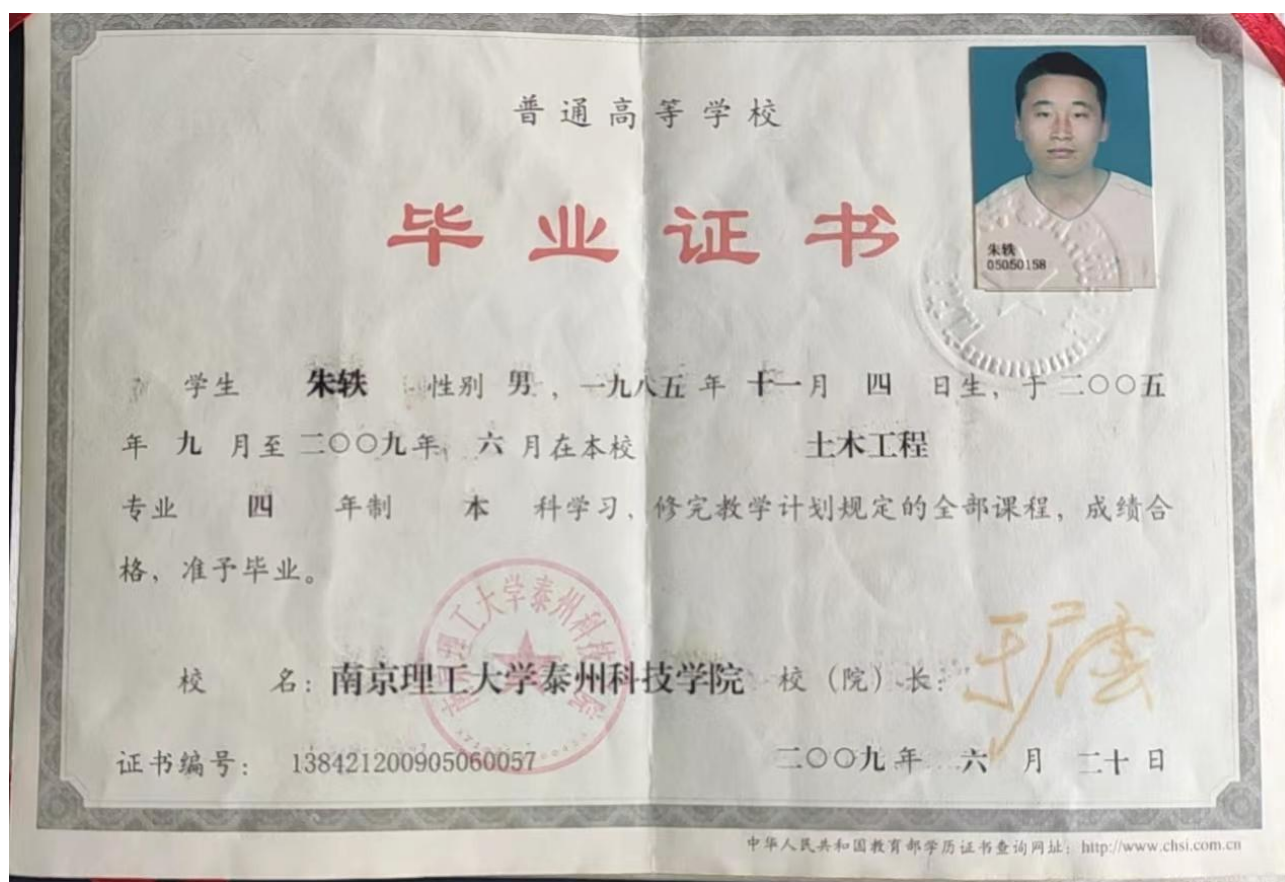 普通高等学校
毕业证书
朱轶
05050158
学生 朱轶 性别 男，一九八五年 十一月 四 日生，于二〇〇五
年 九 月至二〇〇九年 六 月在本校 土木工程
专业 四 年制 本 科学习，修完教学计划规定的全部课程，成绩合
格，准予毕业。
南京理工大学泰州科技学院
校 名：南京理工大学泰州科技学院 校（院）长：
证书编号： 138421200905060057 二〇〇九年 六 月 二十日
中华人民共和国教育部学历证书查询网址：http://www.chsi.com.cn